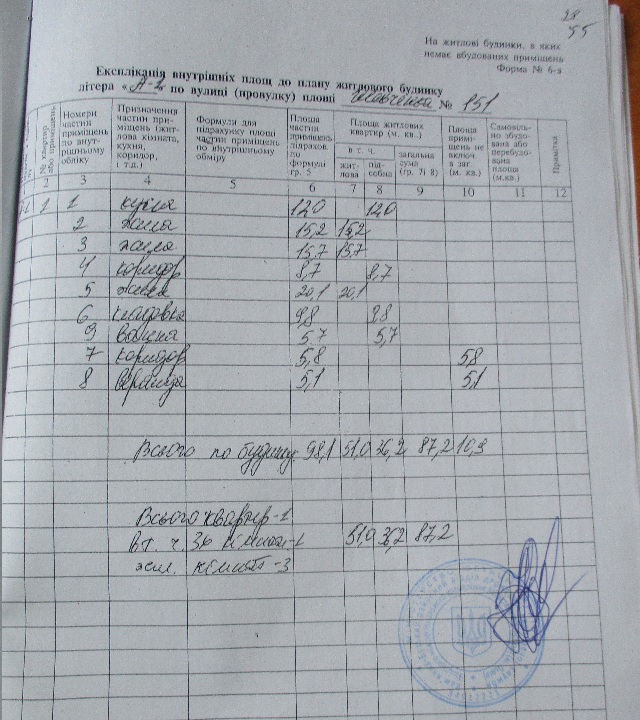 28
55
На житлові будинки, в яких
немає вбудованих приміщень
Форма № 6-а
Експлікація внутрішніх площ до плану житлового будинку
літера «А-1» по вулиці (провулку) площі Шевченка № 151
№ квартир
Номери частин приміщень до внутрішньому обліку
Призначення частин приміщень (житлова кімната, кухня, коридор, і т.д.)
Формули для підрахунку площі частин приміщень по внутрішньому обміру
Площа частин приміщень, підрахов. по формулі гр. 5
Площа житлових квартир (м. кв..)
в т. ч.
житлова
підсобна
загальна
(гр. 7і 8)
Площа приміщень не включ. в заг. (м. кв.)
Самовільно збудована або перебудована площа (м.кв.)
Примітка
2 3 4 5 6 7 8 9 10 11 12
1 1 кухня 12,0 12,0
2 жила 15,2 15,2
3 жила 15,7 15,7
4 коридор 8,7 8,7
5 жила 20,1 20,1
6 кладовка 9,8 9,8
9 ванна 5,7 5,7
7 коридор 5,8 5,8
8 веранда 5,1 5,1
Всього по будинку 98,1 51,0 36,2 87,2 10,9
Всього квартир-1
в т. ч. 3х кімнат-1 51,0 36,2 87,2
жил. кімнат -3